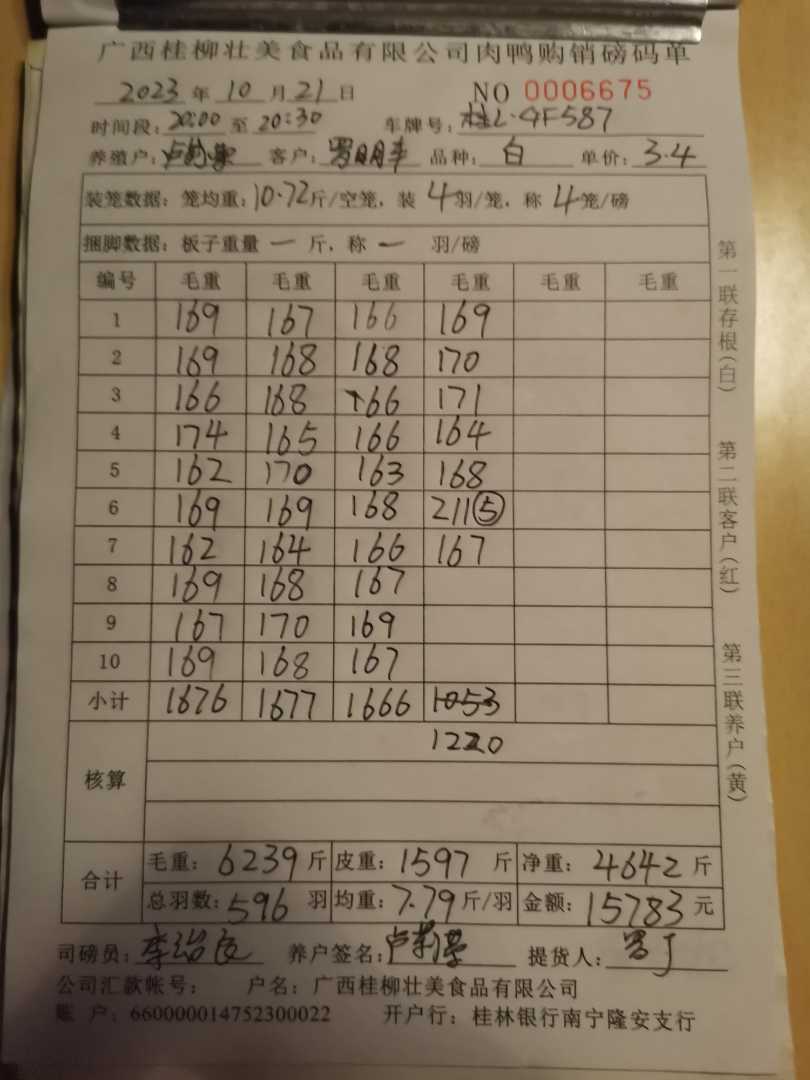 广西桂柳壮美食品有限公司肉鸭购销磅码单
2023 年 10 月 21 日 NO 0006675
时间段: 20:00 至 20:30 车牌号: 桂L·9F587
养殖户: 卢 客户: 罗明丰 品种: 白 单价: 3.4
装笼数据: 笼均重: 10.72 斤/空笼, 装 4 羽/笼, 称 4 笼/磅
捆脚数据: 板子重量 一 斤, 称 一 羽/磅
编号 毛重 毛重 毛重 毛重 毛重 毛重
1 169 167 166 169
2 169 168 168 170
3 166 168 166 171
4 174 165 166 164
5 162 170 163 168
6 169 169 168 211⑤
7 162 164 166 167
8 169 168 167
9 167 170 169
10 169 168 167
小计 1676 1677 1666 1053
1220
核算
合计
毛重: 6239 斤 皮重: 1597 斤 净重: 4642 斤
总羽数: 596 羽 均重: 7.79 斤/羽 金额: 15783 元
司磅员: 李治良 养户签名: 卢 提货人: 罗丁
公司汇款帐号: 户名: 广西桂柳壮美食品有限公司
账 户: 660000014752300022 开户行: 桂林银行南宁隆安支行
第一联存根(白)
第二联客户(红)
第三联养户(黄)